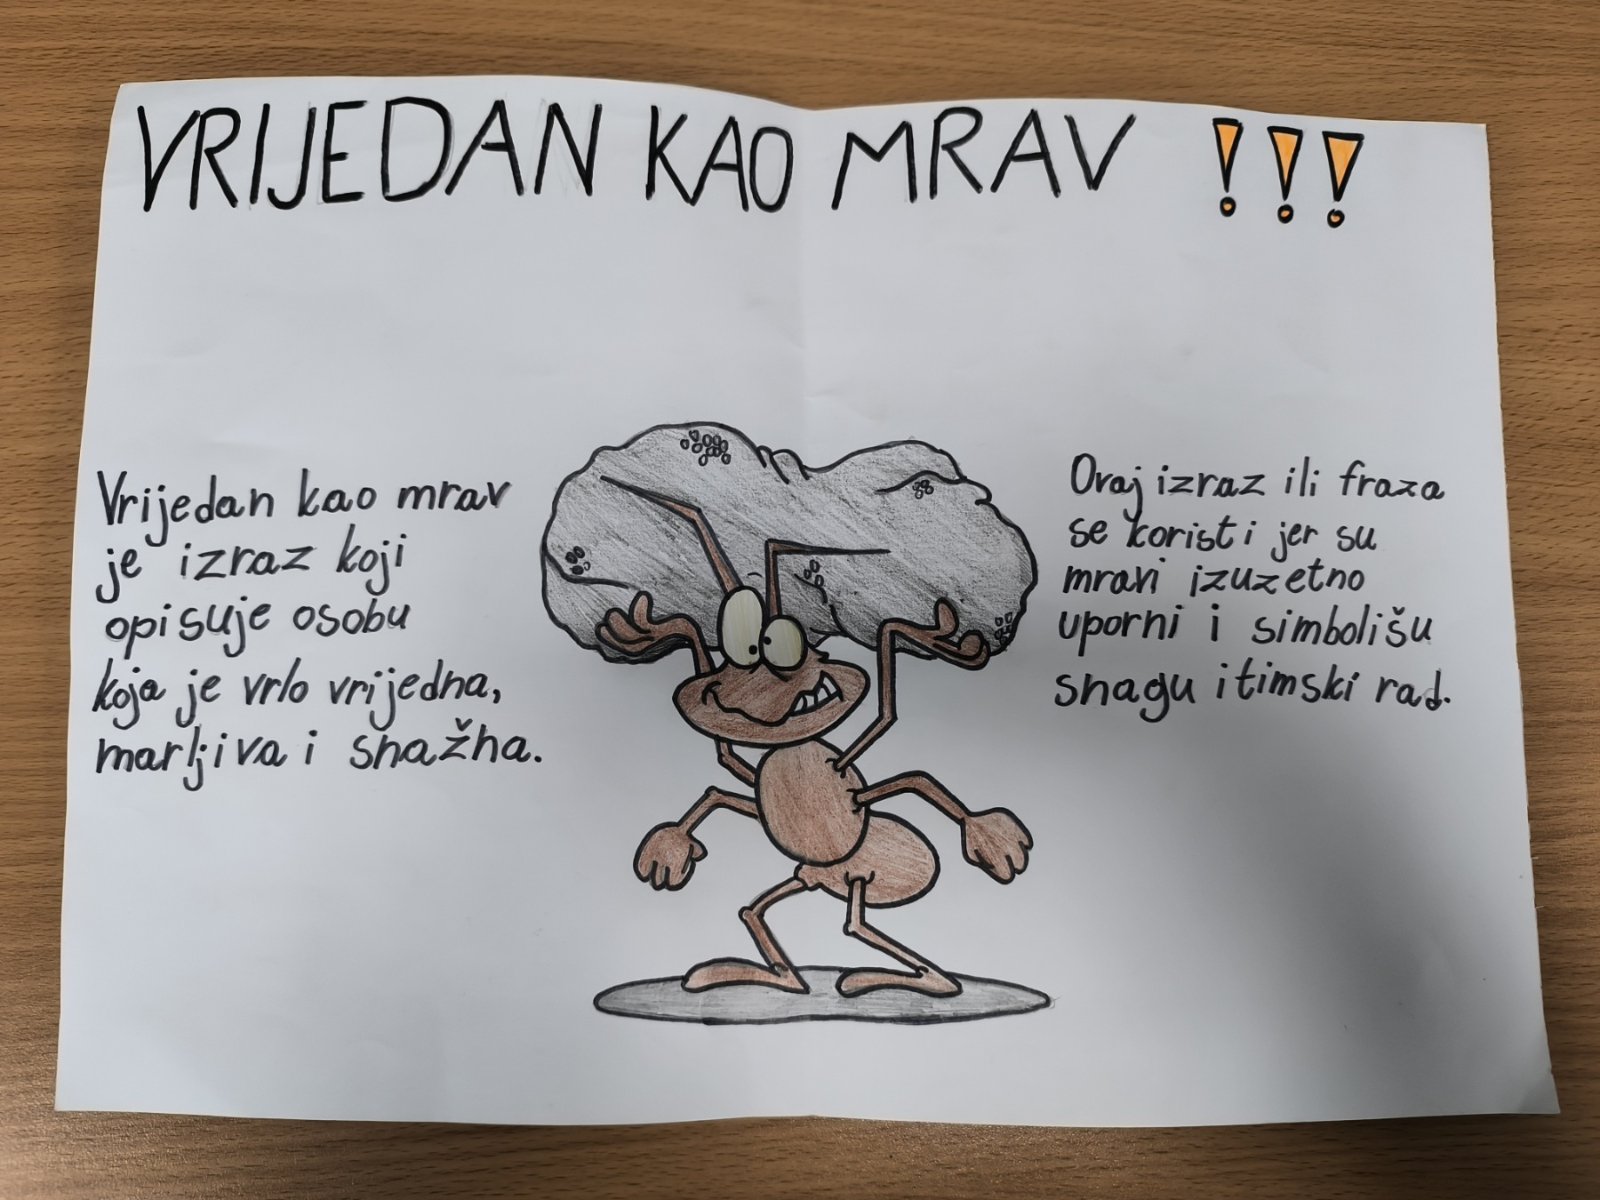 VRIJEDAN KAO MRAV !!!
Vrijedan kao mrav
je izraz koji
opisuje osobu
koja je vrlo vrijedna,
marljiva i snažna.
Ovaj izraz ili fraza
se koristi jer su
mravi izuzetno
uporni i simbolišu
snagu i timski rad.